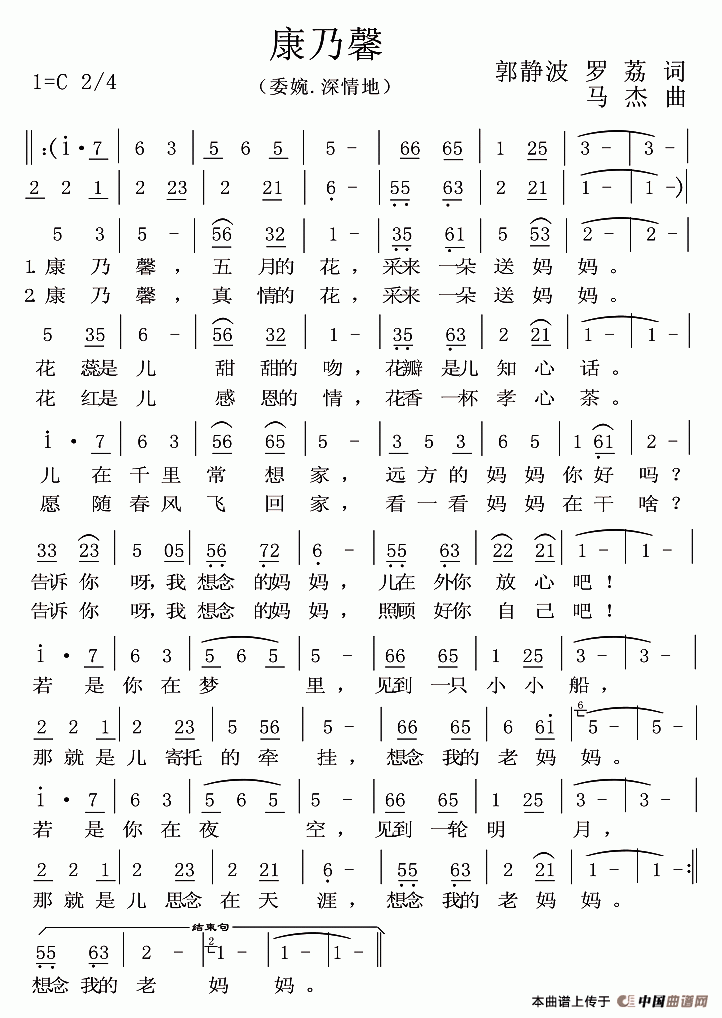 康乃馨
1=C 2/4
（委婉.深情地）
郭静波 罗荔 词
马杰 曲
‖:(i·7 | 6 3 | 5 6 5 | 5 - | 66 65 | 1 25 | 3 - | 3 - |
2 2 1 | 2 23 | 2 21 | 6 - | 55 63 | 2 21 | 1 - | 1 -)|
5 3 | 5 - | 56 32 | 1 - | 35 61 | 5 53 | 2 - | 2 - |
1.康乃馨，五月的花，采来一朵送妈妈。
2.康乃馨，真情的花，采来一朵送妈妈。
5 35 | 6 - | 56 32 | 1 - | 35 63 | 2 21 | 1 - | 1 - |
花蕊是儿甜甜的吻，花瓣是儿知心话。
花红是儿感恩的情，花香一杯孝心茶。
i·7 | 6 3 | 56 65 | 5 - | 3 5 3 | 6 5 | 1 61 | 2 - |
儿在千里常想家，远方的妈妈你好吗？
愿随春风飞回家，看一看妈妈在干啥？
33 23 | 5 05 | 56 72 | 6 - | 55 63 | 22 21 | 1 - | 1 - |
告诉你呀，我想念的妈妈，儿在外你放心吧！
告诉你呀，我想念的妈妈，照顾好你自己吧！
i·7 | 6 3 | 5 6 5 | 5 - | 66 65 | 1 25 | 3 - | 3 - |
若是你在梦里，见到一只小小船，
2 2 1 | 2 23 | 5 56 | 5 - | 66 65 | 6 6i | 6 5 - | 5 - |
那就是儿寄托的牵挂，想念我的老妈妈。
i·7 | 6 3 | 5 6 5 | 5 - | 66 65 | 1 25 | 3 - | 3 - |
若是你在夜空，见到一轮明月，
2 2 1 | 2 23 | 2 21 | 6 - | 55 63 | 2 21 | 1 - | 1 - :‖
那就是儿思念在天涯，想念我的老妈妈。
结束句
55 63 | 2 - | 2 1 - | 1 - | 1 - ‖
想念我的老妈妈。
本曲谱上传于 中国曲谱网